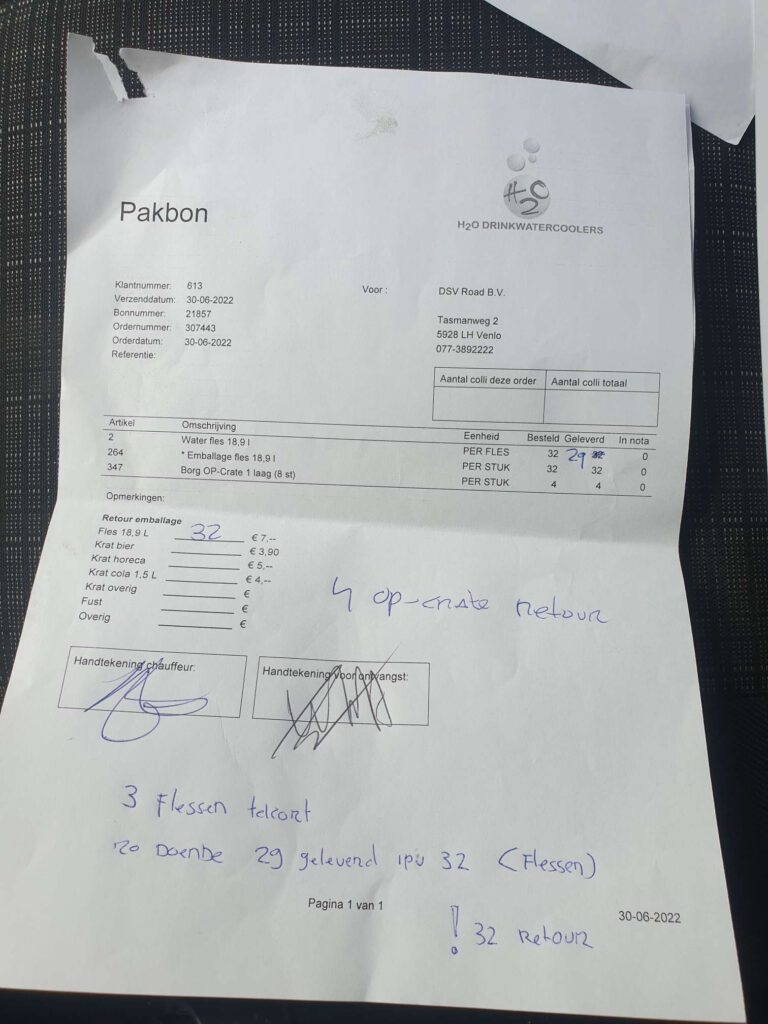 H2O
H2O DRINKWATERCOOLERS
Pakbon
Klantnummer: 613
Verzenddatum: 30-06-2022
Bonnummer: 21857
Ordernummer: 307443
Orderdatum: 30-06-2022
Referentie:
Voor : DSV Road B.V.
Tasmanweg 2
5928 LH Venlo
077-3892222
Aantal colli deze order Aantal colli totaal
Artikel Omschrijving Eenheid Besteld Geleverd In nota
2 Water fles 18,9 l PER FLES 32 29 32 0
264 * Emballage fles 18,9 l PER STUK 32 32 0
347 Borg OP-Crate 1 laag (8 st) PER STUK 4 4 0
Opmerkingen:
Retour emballage
Fles 18,9 L 32 € 7,--
Krat bier € 3,90
Krat horeca € 5,--
Krat cola 1,5 L € 4,--
Krat overig €
Fust €
Overig €
4 op-crate retour
Handtekening chauffeur:
Handtekening voor ontvangst:
3 Flessen tekort
29 geleverd ipv 32 (Flessen)
Pagina 1 van 1
30-06-2022
! 32 Retour